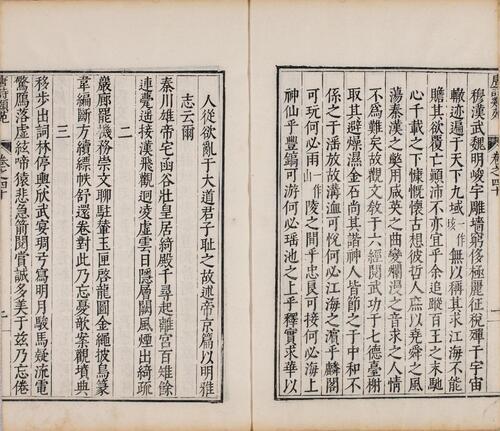 唐詩類苑 卷之四十
穆漢武魏明峻宇雕牆窮侈極麗征稅殫于宇宙
轍迹遍于天下九域一作垓無以稱其求江海不能
贍其欲覆亡顛沛不亦宜乎余追蹤百王之末馳
心千載之下慷慨懷古想彼哲人庶以堯舜之風
蕩秦漢之弊用咸英之曲變爛漫之音求之人情
不爲難矣故觀文敎于六經閱武功于七德臺榭
取其避燥濕金石尚其諧神人皆節之于中和不
係之于淫放故溝洫可悅何必江海之濱乎麟閣
可玩何必兩一作山陵之間乎忠良可接何必海上
神仙乎豐鎬可游何必瑤池之上乎釋實求華以
人從欲亂于大道君子恥之故述帝京篇以明雅
志云爾
秦川雄帝宅函谷壯皇居綺殿千尋起離宮百雉餘
連甍遙接漢飛觀迥凌虛雲日隱層闕風煙出綺疏
二
巖廊罷機務崇文聊駐輦玉匣啓龍圖金繩披鳥篆
韋編斷方續縹帙舒還卷對此乃忘憂欹案觀墳典
三
移步出詞林停輿欣武宴琱弓寫明月駿馬疑流電
驚鴈落虛弦啼猿悲急箭閱賞誠多美于玆乃忘倦
唐詩類苑 卷之四十 二